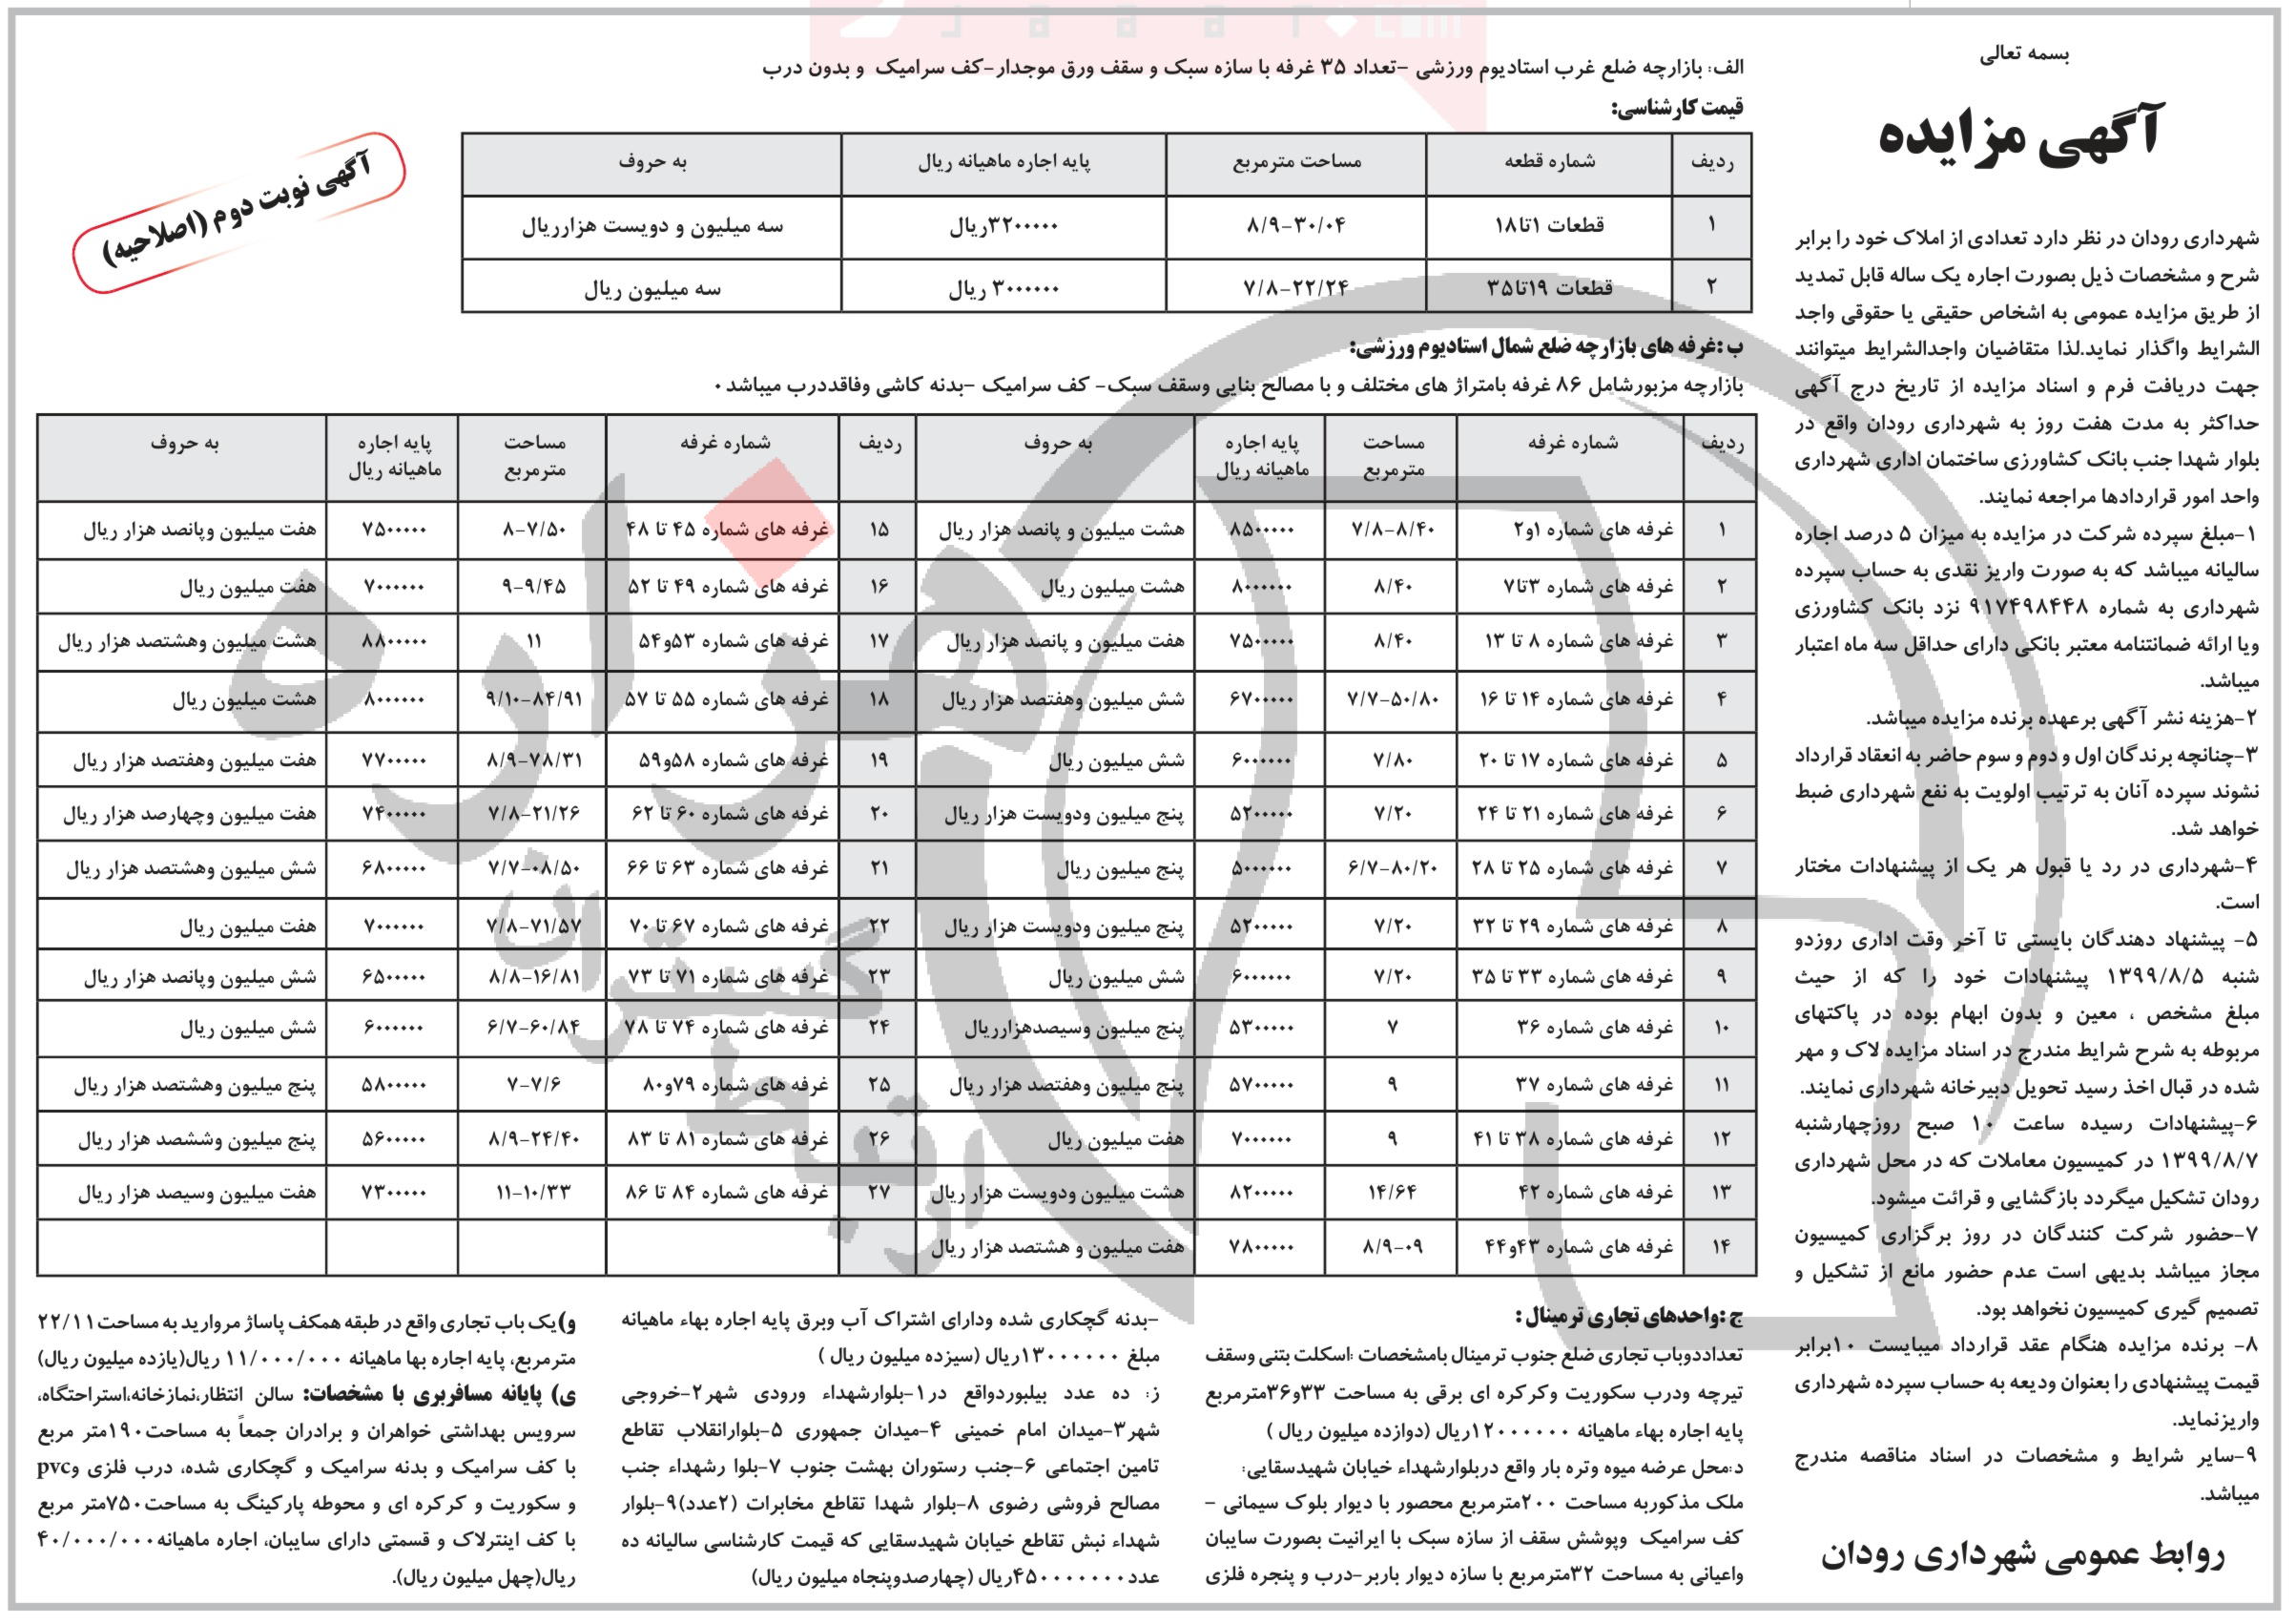 بسمه تعالی
آگهی مزایده
شهرداری رودان در نظر دارد تعدادی از املاک خود را برابر
شرح و مشخصات ذیل بصورت اجاره یک ساله قابل تمدید
از طریق مزایده عمومی به اشخاص حقیقی یا حقوقی واجد
الشرایط واگذار نماید.لذا متقاضیان واجدالشرایط میتوانند
جهت دریافت فرم و اسناد مزایده از تاریخ درج آگهی
حداکثر به مدت هفت روز به شهرداری رودان واقع در
بلوار شهدا جنب بانک کشاورزی ساختمان اداری شهرداری
واحد امور قراردادها مراجعه نمایند.
۱-مبلغ سپرده شرکت در مزایده به میزان ۵ درصد اجاره
سالیانه میباشد که به صورت واریز نقدی به حساب سپرده
شهرداری به شماره ۹۱۷۴۹۸۴۴۸ نزد بانک کشاورزی
ویا ارائه ضمانتنامه معتبر بانکی دارای حداقل سه ماه اعتبار
میباشد.
۲-هزینه نشر آگهی برعهده برنده مزایده میباشد.
۳-چنانچه برندگان اول و دوم و سوم حاضر به انعقاد قرارداد
نشوند سپرده آنان به ترتیب اولویت به نفع شهرداری ضبط
خواهد شد.
۴-شهرداری در رد یا قبول هر یک از پیشنهادات مختار
است.
۵- پیشنهاد دهندگان بایستی تا آخر وقت اداری روزدو
شنبه ۱۳۹۹/۸/۵ پیشنهادات خود را که از حیث
مبلغ مشخص ، معین و بدون ابهام بوده در پاکتهای
مربوطه به شرح شرایط مندرج در اسناد مزایده لاک و مهر
شده در قبال اخذ رسید تحویل دبیرخانه شهرداری نمایند.
۶-پیشنهادات رسیده ساعت ۱۰ صبح روزچهارشنبه
۱۳۹۹/۸/۷ در کمیسیون معاملات که در محل شهرداری
رودان تشکیل میگردد بازگشایی و قرائت میشود.
۷-حضور شرکت کنندگان در روز برگزاری کمیسیون
مجاز میباشد بدیهی است عدم حضور مانع از تشکیل و
تصمیم گیری کمیسیون نخواهد بود.
۸- برنده مزایده هنگام عقد قرارداد میبایست ۱۰برابر
قیمت پیشنهادی را بعنوان ودیعه به حساب سپرده شهرداری
واریزنماید.
۹-سایر شرایط و مشخصات در اسناد مناقصه مندرج
میباشد.
روابط عمومی شهرداری رودان
الف: بازارچه ضلع غرب استادیوم ورزشی -تعداد ۳۵ غرفه با سازه سبک و سقف ورق موجدار-کف سرامیک و بدون درب
قیمت کارشناسی:
آگهی نوبت دوم (اصلاحیه)
ردیف شماره قطعه مساحت مترمربع پایه اجاره ماهیانه ریال به حروف
۱ قطعات ۱تا۱۸ ۸/۹-۳۰/۰۴ ۳۲۰۰۰۰۰ریال سه میلیون و دویست هزارریال
۲ قطعات ۱۹تا۳۵ ۷/۸-۲۲/۲۴ ۳۰۰۰۰۰۰ ریال سه میلیون ریال
ب :غرفه های بازارچه ضلع شمال استادیوم ورزشی:
بازارچه مزبورشامل ۸۶ غرفه بامتراژ های مختلف و با مصالح بنایی وسقف سبک- کف سرامیک -بدنه کاشی وفاقددرب میباشد ۰
ردیف شماره غرفه مساحت مترمربع پایه اجاره ماهیانه ریال به حروف ردیف شماره غرفه مساحت مترمربع پایه اجاره ماهیانه ریال به حروف
۱ غرفه های شماره ۱و۲ ۷/۸-۸/۴۰ ۸۵۰۰۰۰۰ هشت میلیون و پانصد هزار ریال ۱۵ غرفه های شماره ۴۵ تا ۴۸ ۸-۷/۵۰ ۷۵۰۰۰۰۰ هفت میلیون وپانصد هزار ریال
۲ غرفه های شماره ۳تا۷ ۸/۴۰ ۸۰۰۰۰۰۰ هشت میلیون ریال ۱۶ غرفه های شماره ۴۹ تا ۵۲ ۹-۹/۴۵ ۷۰۰۰۰۰۰ هفت میلیون ریال
۳ غرفه های شماره ۸ تا ۱۳ ۸/۴۰ ۷۵۰۰۰۰۰ هفت میلیون و پانصد هزار ریال ۱۷ غرفه های شماره ۵۳و۵۴ ۱۱ ۸۸۰۰۰۰۰ هشت میلیون وهشتصد هزار ریال
۴ غرفه های شماره ۱۴ تا ۱۶ ۷/۷-۵۰/۸۰ ۶۷۰۰۰۰۰ شش میلیون وهفتصد هزار ریال ۱۸ غرفه های شماره ۵۵ تا ۵۷ ۹/۱۰-۸۴/۹۱ ۸۰۰۰۰۰۰ هشت میلیون ریال
۵ غرفه های شماره ۱۷ تا ۲۰ ۷/۸۰ ۶۰۰۰۰۰۰ شش میلیون ریال ۱۹ غرفه های شماره ۵۸و۵۹ ۸/۹-۷۸/۳۱ ۷۷۰۰۰۰۰ هفت میلیون وهفتصد هزار ریال
۶ غرفه های شماره ۲۱ تا ۲۴ ۷/۲۰ ۵۲۰۰۰۰۰ پنج میلیون ودویست هزار ریال ۲۰ غرفه های شماره ۶۰ تا ۶۲ ۷/۸-۲۱/۲۶ ۷۴۰۰۰۰۰ هفت میلیون وچهارصد هزار ریال
۷ غرفه های شماره ۲۵ تا ۲۸ ۶/۷-۸۰/۲۰ ۵۰۰۰۰۰۰ پنج میلیون ریال ۲۱ غرفه های شماره ۶۳ تا ۶۶ ۷/۷-۰۸/۵۰ ۶۸۰۰۰۰۰ شش میلیون وهشتصد هزار ریال
۸ غرفه های شماره ۲۹ تا ۳۲ ۷/۲۰ ۵۲۰۰۰۰۰ پنج میلیون ودویست هزار ریال ۲۲ غرفه های شماره ۶۷ تا ۷۰ ۷/۸-۷۱/۵۷ ۷۰۰۰۰۰۰ هفت میلیون ریال
۹ غرفه های شماره ۳۳ تا ۳۵ ۷/۲۰ ۶۰۰۰۰۰۰ شش میلیون ریال ۲۳ غرفه های شماره ۷۱ تا ۷۳ ۸/۸-۱۶/۸۱ ۶۵۰۰۰۰۰ شش میلیون وپانصد هزار ریال
۱۰ غرفه های شماره ۳۶ ۷ ۵۳۰۰۰۰۰ پنج میلیون وسیصدهزارریال ۲۴ غرفه های شماره ۷۴ تا ۷۸ ۶/۷-۶۰/۸۴ ۶۰۰۰۰۰۰ شش میلیون ریال
۱۱ غرفه های شماره ۳۷ ۹ ۵۷۰۰۰۰۰ پنج میلیون وهفتصد هزار ریال ۲۵ غرفه های شماره ۷۹و۸۰ ۷-۷/۶ ۵۸۰۰۰۰۰ پنج میلیون وهشتصد هزار ریال
۱۲ غرفه های شماره ۳۸ تا ۴۱ ۹ ۷۰۰۰۰۰۰ هفت میلیون ریال ۲۶ غرفه های شماره ۸۱ تا ۸۳ ۸/۹-۲۴/۴۰ ۵۶۰۰۰۰۰ پنج میلیون وششصد هزار ریال
۱۳ غرفه های شماره ۴۲ ۱۴/۶۴ ۸۲۰۰۰۰۰ هشت میلیون ودویست هزار ریال ۲۷ غرفه های شماره ۸۴ تا ۸۶ ۱۱-۱۰/۳۳ ۷۳۰۰۰۰۰ هفت میلیون وسیصد هزار ریال
۱۴ غرفه های شماره ۴۳و۴۴ ۸/۹-۰۹ ۷۸۰۰۰۰۰ هفت میلیون و هشتصد هزار ریال
ج :واحدهای تجاری ترمینال :
تعداددوباب تجاری ضلع جنوب ترمینال بامشخصات :اسکلت بتنی وسقف
تیرچه ودرب سکوریت وکرکره ای برقی به مساحت ۳۳و۳۶مترمربع
پایه اجاره بهاء ماهیانه ۱۲۰۰۰۰۰۰ریال (دوازده میلیون ریال )
د:محل عرضه میوه وتره بار واقع دربلوارشهداء خیابان شهیدسقایی:
ملک مذکوربه مساحت ۲۰۰مترمربع محصور با دیوار بلوک سیمانی -
کف سرامیک وپوشش سقف از سازه سبک با ایرانیت بصورت سایبان
واعیانی به مساحت ۳۲مترمربع با سازه دیوار باربر-درب و پنجره فلزی
-بدنه گچکاری شده ودارای اشتراک آب وبرق پایه اجاره بهاء ماهیانه
مبلغ ۱۳۰۰۰۰۰۰ریال (سیزده میلیون ریال )
ز: ده عدد بیلبوردواقع در۱-بلوارشهداء ورودی شهر۲-خروجی
شهر۳-میدان امام خمینی ۴-میدان جمهوری ۵-بلوارانقلاب تقاطع
تامین اجتماعی ۶-جنب رستوران بهشت جنوب ۷-بلوا رشهداء جنب
مصالح فروشی رضوی ۸-بلوار شهدا تقاطع مخابرات (۲عدد)۹-بلوار
شهداء نبش تقاطع خیابان شهیدسقایی که قیمت کارشناسی سالیانه ده
عدد۴۵۰۰۰۰۰۰۰ریال (چهارصدوپنجاه میلیون ریال)
و)یک باب تجاری واقع در طبقه همکف پاساژ مروارید به مساحت۲۲/۱۱
مترمربع، پایه اجاره بها ماهیانه ۱۱/۰۰۰/۰۰۰ ریال(یازده میلیون ریال)
ی) پایانه مسافربری با مشخصات: سالن انتظار،نمازخانه،استراحتگاه،
سرویس بهداشتی خواهران و برادران جمعاً به مساحت۱۹۰متر مربع
با کف سرامیک و بدنه سرامیک و گچکاری شده، درب فلزی وpvc
و سکوریت و کرکره ای و محوطه پارکینگ به مساحت۷۵۰متر مربع
با کف اینترلاک و قسمتی دارای سایبان، اجاره ماهیانه۴۰/۰۰۰/۰۰۰
ریال(چهل میلیون ریال).
هزاره
گستران
ارتباط